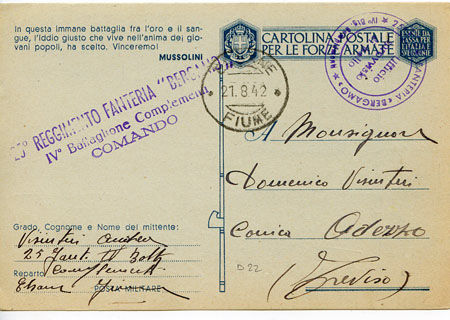 In questa immane battaglia fra l'oro e il san-
gue, l'Iddio giusto che vive nell'anima dei gio-
vani popoli, ha scelto. Vinceremo!
MUSSOLINI
CARTOLINA POSTALE
PER LE FORZE ARMATE
ESENTE DA
TASSA PER
L'ITALIA E
21.8.42
FIUME
25° REGGIMENTO FANTERIA "BERGAMO"
IV° Battaglione Complementi
COMANDO
FANTERIA «BERGAMO»
Ufficio
A Monsignore
Domenico Visintin
Adezzo
(Treviso)
Grado, Cognome e Nome del mittente:
Visintin
25 Fant. IV Batt.
Reparto
POSTA MILITARE
D 22